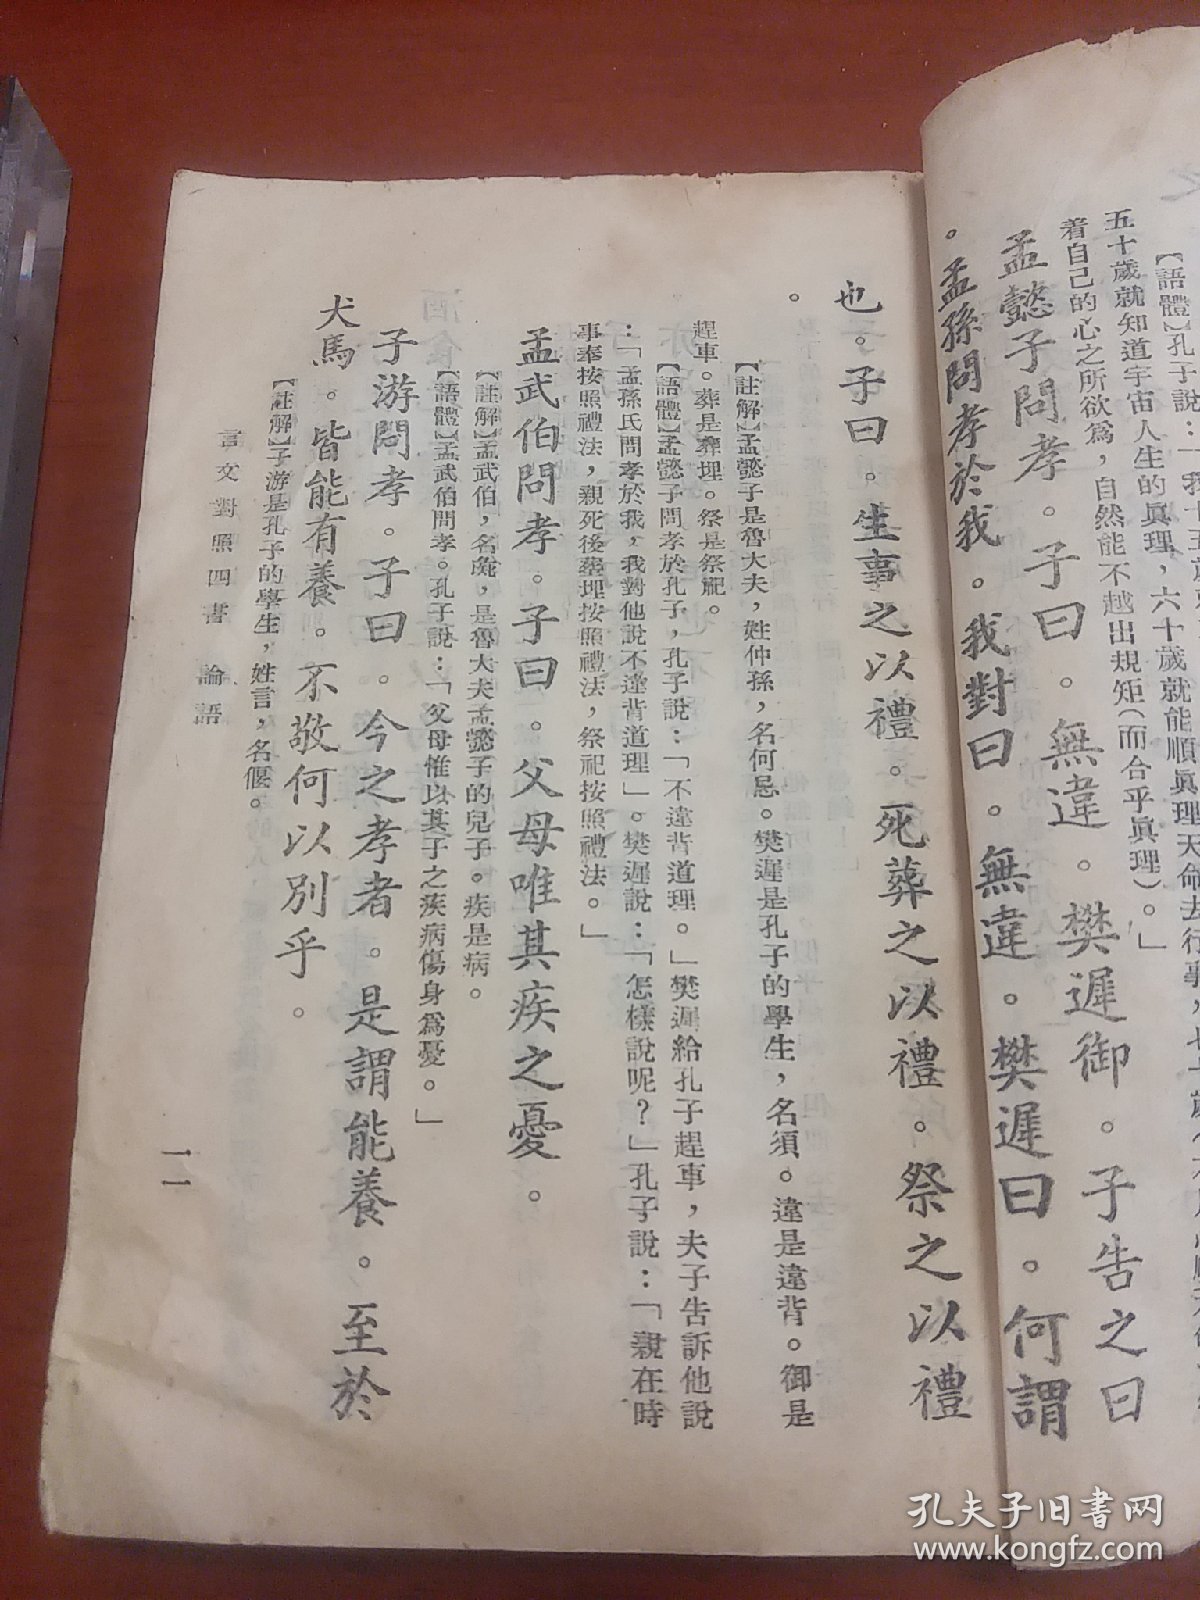 【語體】孔子說：「我十五歲
五十歲就知道宇宙人生的眞理，六十歲就能順眞理天命去行事，七十歲
着自己的心之所欲爲，自然能不越出規矩（而合乎眞理）。」
孟懿子問孝。子曰。無違。樊遲御。子告之曰
。孟孫問孝於我。我對曰。無違。樊遲曰。何謂
也。子曰。生事之以禮。死葬之以禮。祭之以禮
。
【註解】孟懿子是魯大夫，姓仲孫，名何忌。樊遲是孔子的學生，名須。違是違背。御是
趕車。葬是葬埋。祭是祭祀。
【語體】孟懿子問孝於孔子，孔子說：「不違背道理。」樊遲給孔子趕車，夫子告訴他說
：「孟孫氏問孝於我，我對他說不違背道理」。樊遲說：「怎樣說呢？」孔子說：「親在時
事奉按照禮法，親死後葬埋按照禮法，祭祀按照禮法。」
孟武伯問孝。子曰。父母唯其疾之憂。
【註解】孟武伯，名彘，是魯大夫孟懿子的兒子。疾是病。
【語體】孟武伯問孝。孔子說：「父母惟以其子之疾病傷身爲憂。」
子游問孝。子曰。今之孝者。是謂能養。至於
犬馬。皆能有養。不敬何以別乎。
【註解】子游是孔子的學生，姓言，名偃。
言文對照四書 論語
一一
孔夫子旧书网
www.kongfz.com